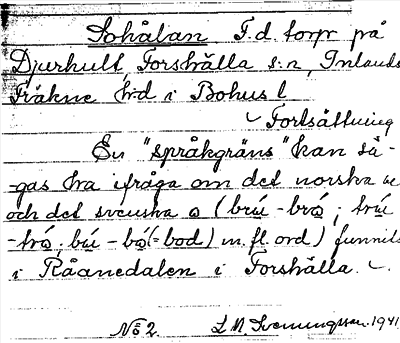 Sohålan F.d. torp på
Djurhult, Forshälla s:n, Inlands
Fräkne h-d i Bohus l
Fortsättning
En "språkgräns" kan sä-
-gas ha ifråga om det norska
och det svenska o (brú - bro ; trú
- tro ; bú - bo (= bod) m. fl. ord) funnits
i Råanedalen i Forshälla.
No 2 L M Svenungsson 1941